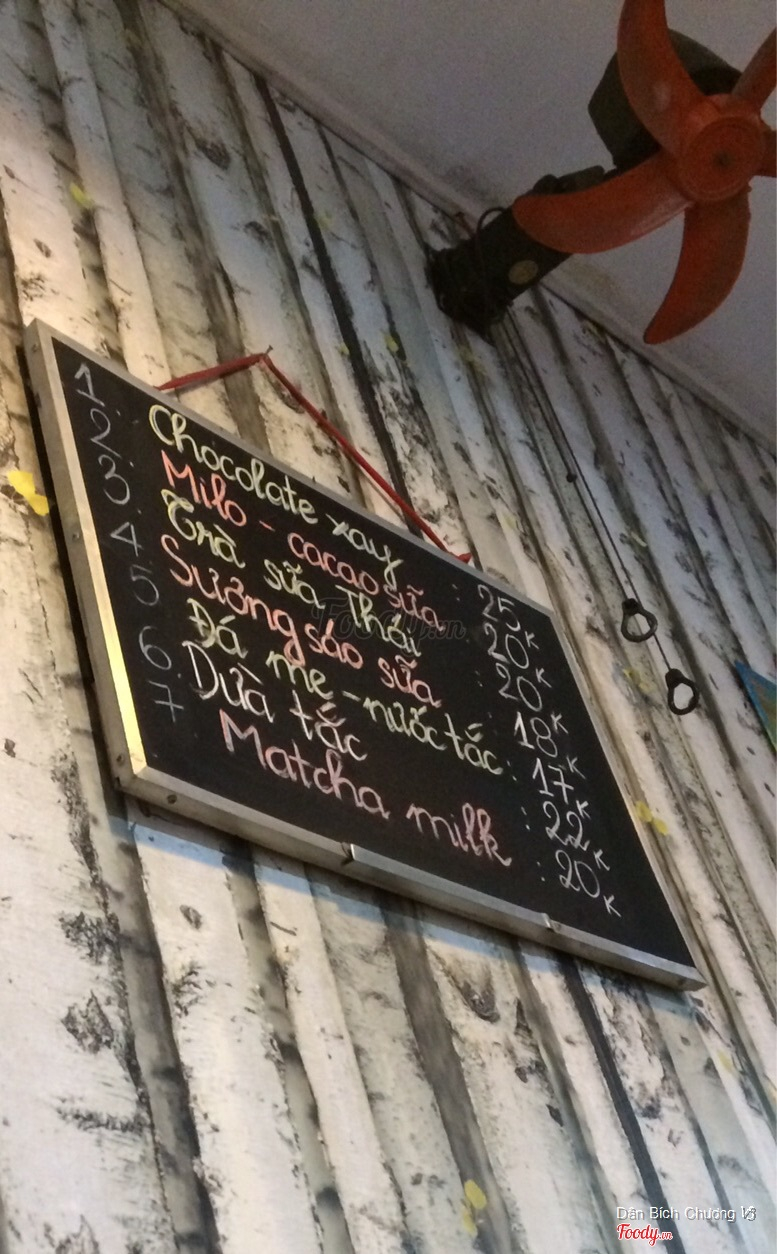 1. Chocolate xay : 25K
2. Milo - cacao sữa : 20K
3. Trà sữa Thái : 20K
4 Sương sáo sữa : 18K
5 Đá me - nước tắc : 17K
6. Dừa tắc : 22K
7 Matcha milk : 20K
Foody.vn
Foody.vn